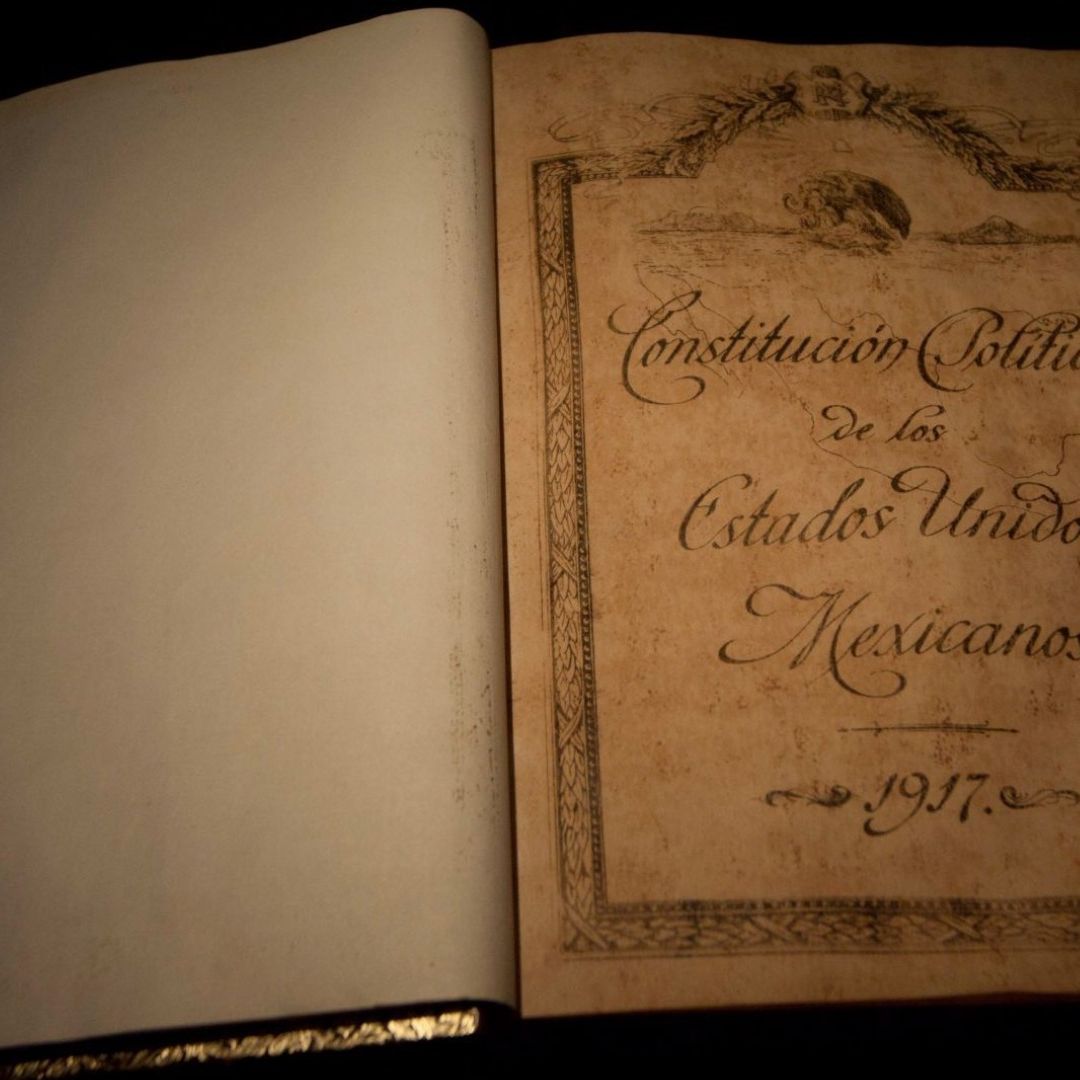 Constitución Polític
de los
Estados Unidos
Mexicanos
1917.